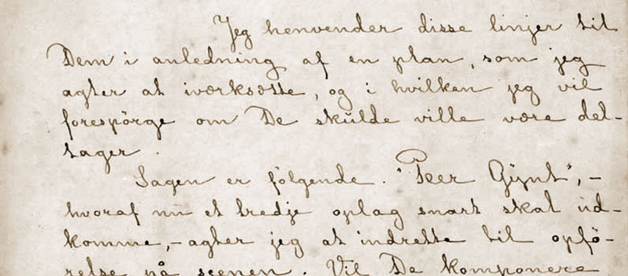 Jeg henvender disse linjer til
Dem i anledning af en plan, som jeg
agter at iværksætte, og i hvilken jeg vil
forespörge om De skulde ville være del-
tager.
Sagen er følgende. "Peer Gynt", –
hvoraf nu et tredje oplag snart skal ud-
komme, – agter jeg at indrette til opfö-
relse på scenen. Vil De komponere